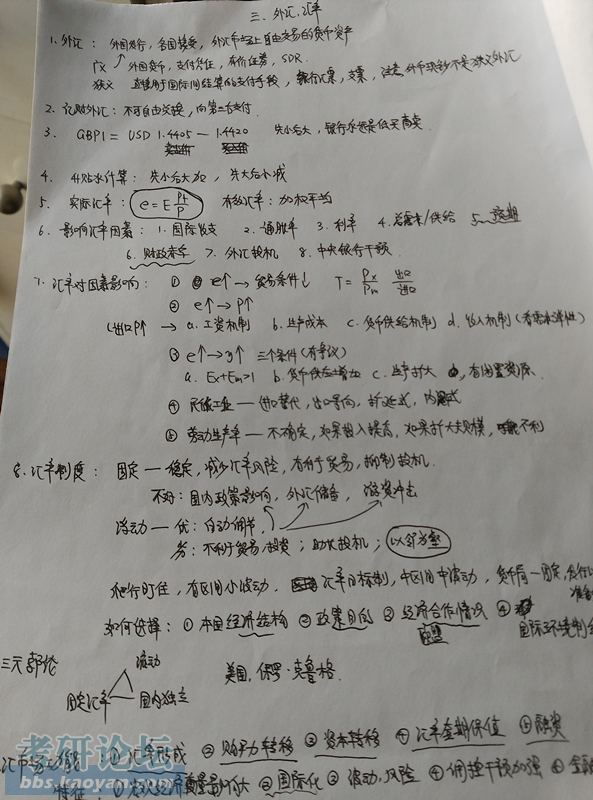 三、外汇、汇率
1. 外汇：外国发行，各国接受，外汇市场上自由交易的货币资产
广义 外国货币，支付凭证，有价证券，SDR.
狭义 直接用于国际间结算的支付手段，银行汇票，支票，注意 外币现钞不是狭义外汇
2. 记账外汇：不可自由兑换，向第三者支付.
3. GBP1 = USD 1.4405 — 1.4420 先小后大，银行永远是低买高卖.
4. 升贴水计算：先小后大加，先大后小减
5. 实际汇率：e=E Pf/P 有效汇率：加权平均
6. 影响汇率因素：1. 国际收支 2. 通胀率 3. 利率 4. 总需求/供给 5. 预期
6. 财政赤字 7. 外汇投机 8. 中央银行干预
7. 汇率对因素影响：① e↑→贸易条件↓ T = Px/Pm 出口/进口
② e↑→P↑
(进口P↑ → a. 工资机制 b. 生产成本 c. 货币供给机制 d. 收入机制(有需求弹性)
③ e↑→y↑ 三个条件(有争议)
a. Ex+Em>1 b. 货币供应增加 c. 生产扩大 有闲置资源.
④ 民族工业 — 进口替代，出口导向，
⑤ 劳动生产率 — 不确定，如果投入提高，如果扩大规模，不利
8. 汇率制度：固定 — 稳定，减少汇率风险，有利于贸易，抑制投机.
不好：国内政策影响，外汇储备，游资冲击
浮动 — 优：自动调节，
劣：不利于贸易/投资；助长投机；以邻为壑
爬行盯住，有区间小波动，汇率目标制，中区间中波动，货币局—固定，发行
准备
如何选择：①本国经济结构 ②政策目的 ③经济合作情况 ④
国际环境制约
三元悖论 流动 美国，保罗·克鲁格.
固定汇率 国内独立
汇市场功能：①汇率形成 ②购买力转移 ③资本转移 ④汇率套期保值 ⑤融资
特征：①宏观经济变量影响大 ②国际化 ③波动，风险 ④调控干预加强 ⑤金融
考研论坛
bbs.kaoyan.com